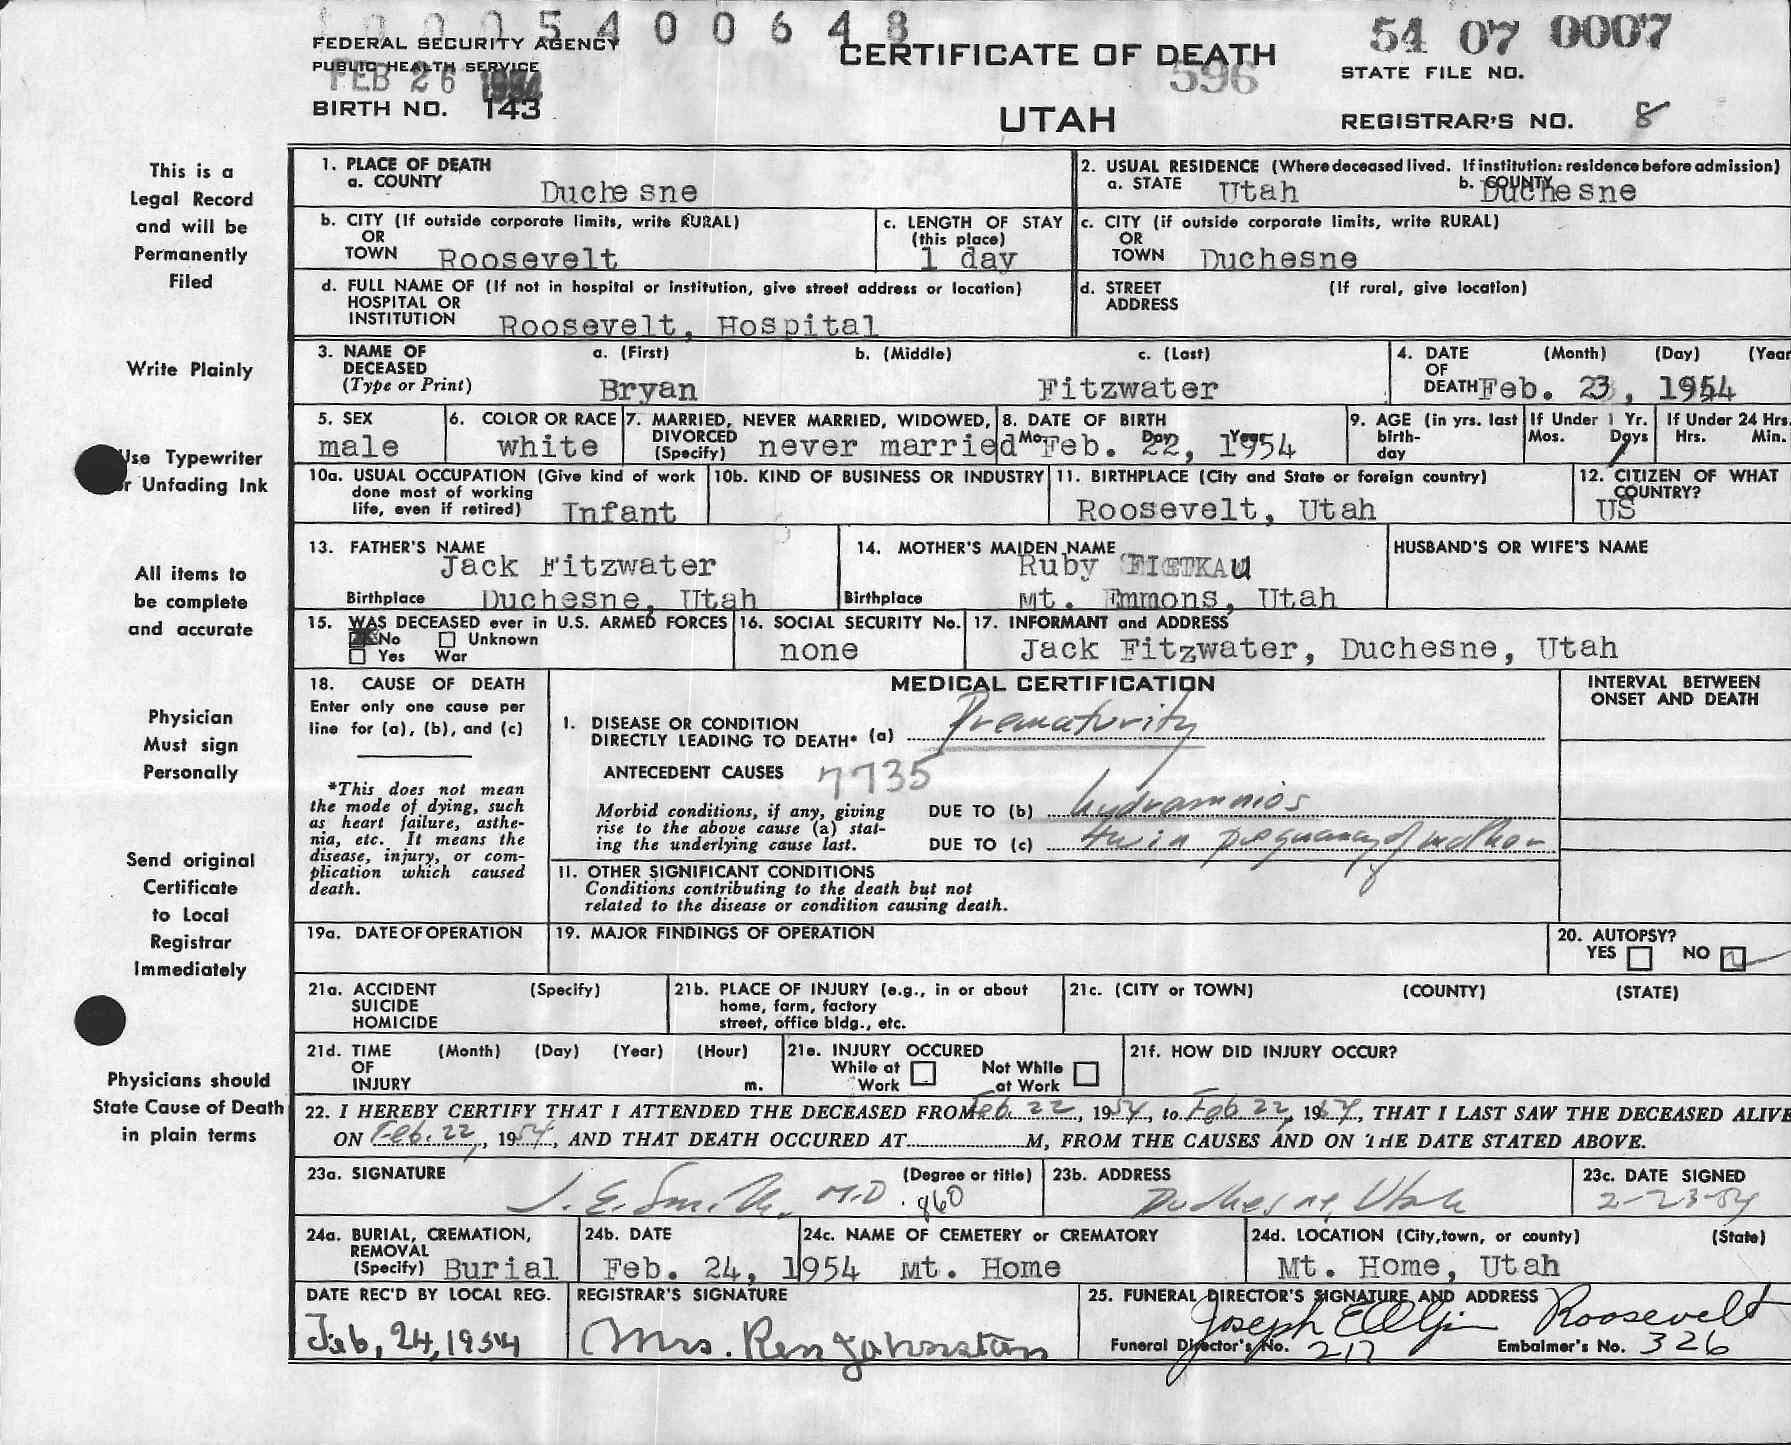 5 4 0 0 6 4 8
54 07 0007
FEDERAL SECURITY AGENCY
PUBLIC HEALTH SERVICE
FEB 26 1954
CERTIFICATE OF DEATH
596
STATE FILE NO.
BIRTH NO. 143
UTAH
REGISTRAR'S NO. 8
This is a
Legal Record
and will be
Permanently
Filed
Write Plainly
Use Typewriter
or Unfading Ink
All items to
be complete
and accurate
Physician
Must sign
Personally
Send original
Certificate
to Local
Registrar
Immediately
Physicians should
State Cause of Death
in plain terms
1. PLACE OF DEATH
a. COUNTY Duchesne
2. USUAL RESIDENCE (Where deceased lived. If institution: residence before admission)
a. STATE Utah b. COUNTY Duchesne
b. CITY (If outside corporate limits, write RURAL)
OR
TOWN Roosevelt
c. LENGTH OF STAY
(this place)
1 day
c. CITY (if outside corporate limits, write RURAL)
OR
TOWN Duchesne
d. FULL NAME OF (If not in hospital or institution, give street address or location)
HOSPITAL OR
INSTITUTION Roosevelt, Hospital
d. STREET (If rural, give location)
ADDRESS
3. NAME OF a. (First) b. (Middle) c. (Last)
DECEASED
(Type or Print) Bryan Fitzwater
4. DATE (Month) (Day) (Year
OF
DEATH Feb. 23, 1954
5. SEX
male
6. COLOR OR RACE
white
7. MARRIED, NEVER MARRIED, WIDOWED,
DIVORCED
(Specify) never married
8. DATE OF BIRTH
Mo. Day Year
Feb. 22, 1954
9. AGE (in yrs. last
birth-
day
If Under 1 Yr.
Mos. Days
1
If Under 24 Hrs.
Hrs. Min.
10a. USUAL OCCUPATION (Give kind of work
done most of working
life, even if retired) Infant
10b. KIND OF BUSINESS OR INDUSTRY
11. BIRTHPLACE (City and State or foreign country)
Roosevelt, Utah
12. CITIZEN OF WHAT
COUNTRY?
US
13. FATHER'S NAME
Jack Fitzwater
Birthplace Duchesne, Utah
14. MOTHER'S MAIDEN NAME
Ruby FIETKAU
Birthplace Mt. Emmons, Utah
HUSBAND'S OR WIFE'S NAME
15. WAS DECEASED ever in U.S. ARMED FORCES
No Unknown
Yes War
16. SOCIAL SECURITY No.
none
17. INFORMANT and ADDRESS
Jack Fitzwater, Duchesne, Utah
18. CAUSE OF DEATH
Enter only one cause per
line for (a), (b), and (c)
*This does not mean
the mode of dying, such
as heart failure, asthe-
nia, etc. It means the
disease, injury, or com-
plication which caused
death.
MEDICAL CERTIFICATION
INTERVAL BETWEEN
ONSET AND DEATH
I. DISEASE OR CONDITION
DIRECTLY LEADING TO DEATH* (a) Prematurity
ANTECEDENT CAUSES 7735
Morbid conditions, if any, giving
rise to the above cause (a) stat-
ing the underlying cause last.
DUE TO (b) hydramnios
DUE TO (c) twin pregnancy of mother
II. OTHER SIGNIFICANT CONDITIONS
Conditions contributing to the death but not
related to the disease or condition causing death.
19a. DATE OF OPERATION
19. MAJOR FINDINGS OF OPERATION
20. AUTOPSY?
YES NO
21a. ACCIDENT (Specify)
SUICIDE
HOMICIDE
21b. PLACE OF INJURY (e.g., in or about
home, farm, factory
street, office bldg., etc.
21c. (CITY or TOWN) (COUNTY) (STATE)
21d. TIME (Month) (Day) (Year) (Hour)
OF
INJURY m.
21e. INJURY OCCURED
While at Work
Not While at Work
21f. HOW DID INJURY OCCUR?
22. I HEREBY CERTIFY THAT I ATTENDED THE DECEASED FROM Feb. 22, 1954, to Feb 22, 1954, THAT I LAST SAW THE DECEASED ALIVE
ON Feb. 22, 1954, AND THAT DEATH OCCURED AT M, FROM THE CAUSES AND ON THE DATE STATED ABOVE.
23a. SIGNATURE (Degree or title)
J. E. Smith, M.D. 860
23b. ADDRESS
Duchesne, Utah
23c. DATE SIGNED
2-23-54
24a. BURIAL, CREMATION,
REMOVAL
(Specify) Burial
24b. DATE
Feb. 24, 1954
24c. NAME OF CEMETERY or CREMATORY
Mt. Home
24d. LOCATION (City, town, or county) (State)
Mt. Home, Utah
DATE REC'D BY LOCAL REG.
Feb, 24, 1954
REGISTRAR'S SIGNATURE
Mrs. Ren Johnston
25. FUNERAL DIRECTOR'S SIGNATURE AND ADDRESS
Joseph E Roosevelt
Funeral Director's No. 217 Embalmer's No. 326